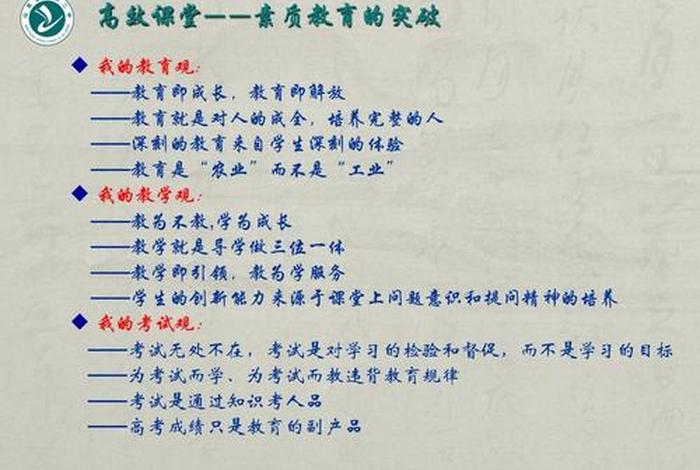 高效课堂——素质教育的突破
我的教育观：
——教育即成长，教育即解放
——教育就是对人的成全，培养完整的人
——深刻的教育来自学生深刻的体验
——教育是“农业”而不是“工业”
我的教学观：
——教为不教,学为成长
——教学就是导学做三位一体
——教学即引领，教为学服务
——学生的创新能力来源于课堂上问题意识和提问精神的培养
我的考试观：
——考试无处不在，考试是对学习的检验和督促，而不是学习的目标
——为考试而学、为考试而教违背教育规律
——考试是通过知识考人品
——高考成绩只是教育的副产品